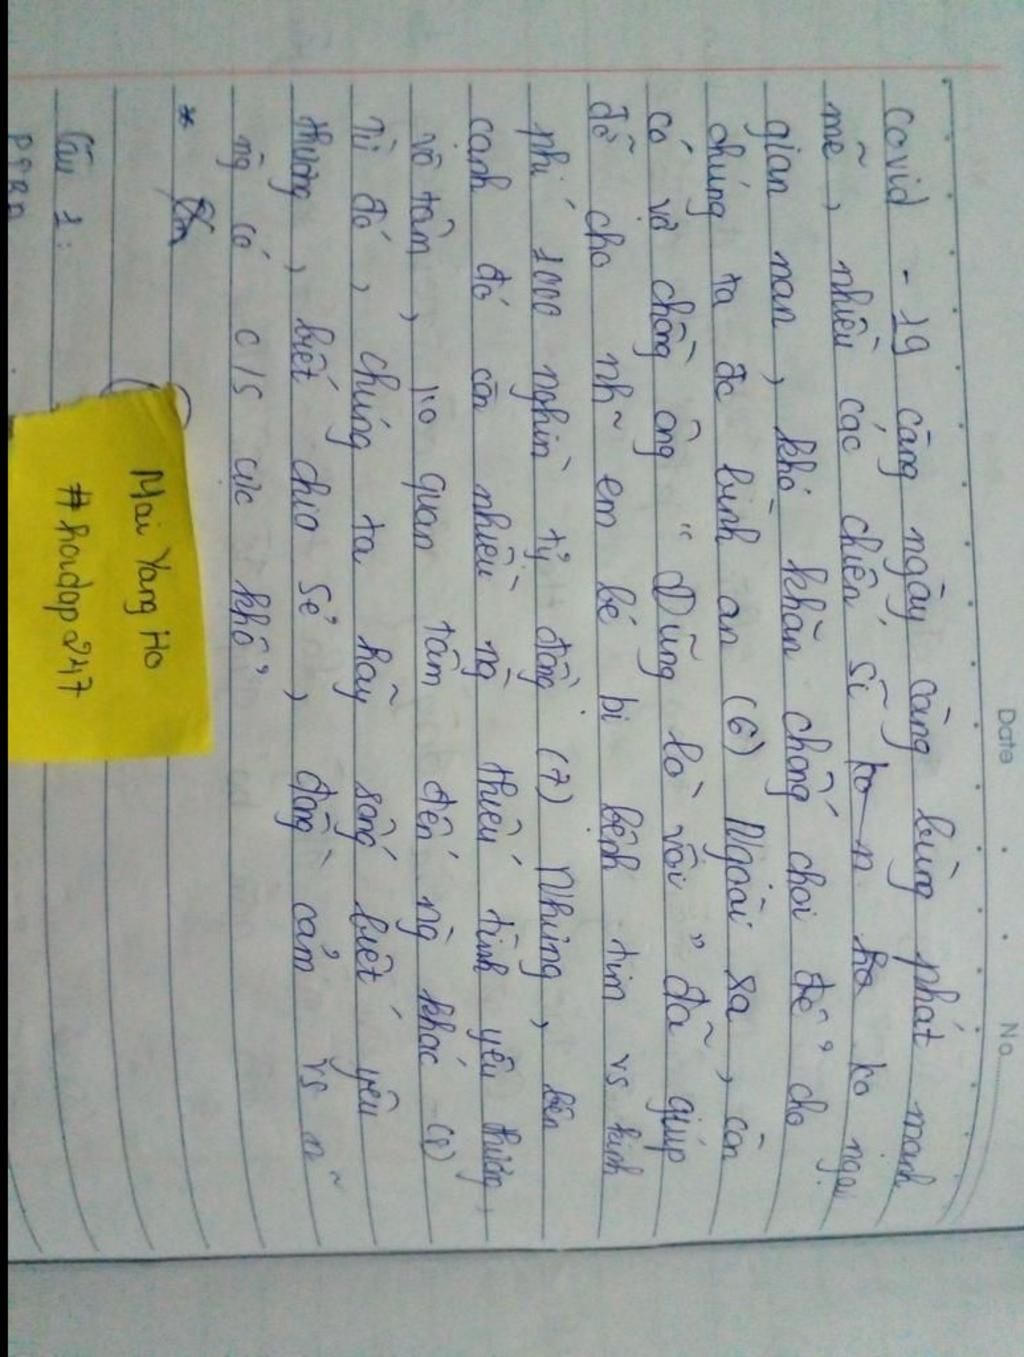 Date
No
covid - 19 càng ngày càng bùng phát mạnh
mẽ, nhiều các chiến sĩ ko ngại
gian nan, khó khăn chống chọi để cho
chúng ta đc bình an (6) Ngoài ra, còn
có vợ chồng ông " Dũng lò vôi " đã giúp
đỡ cho nh~ em bé bị bệnh tim vs kinh
phí 1000 nghìn tỷ đồng (7) Nhưng, bên
cạnh đó còn nhiều ng thiếu tình yêu thương,
vô tâm, ko quan tâm đến ng khác (8)
Từ đó, chúng ta hãy sống biết yêu
thương, biết chia sẻ, đồng cảm vs n~
ng có c/s cực khổ
*
Câu 1:
PTBĐ
Mai Yang Ho
#hoidap247